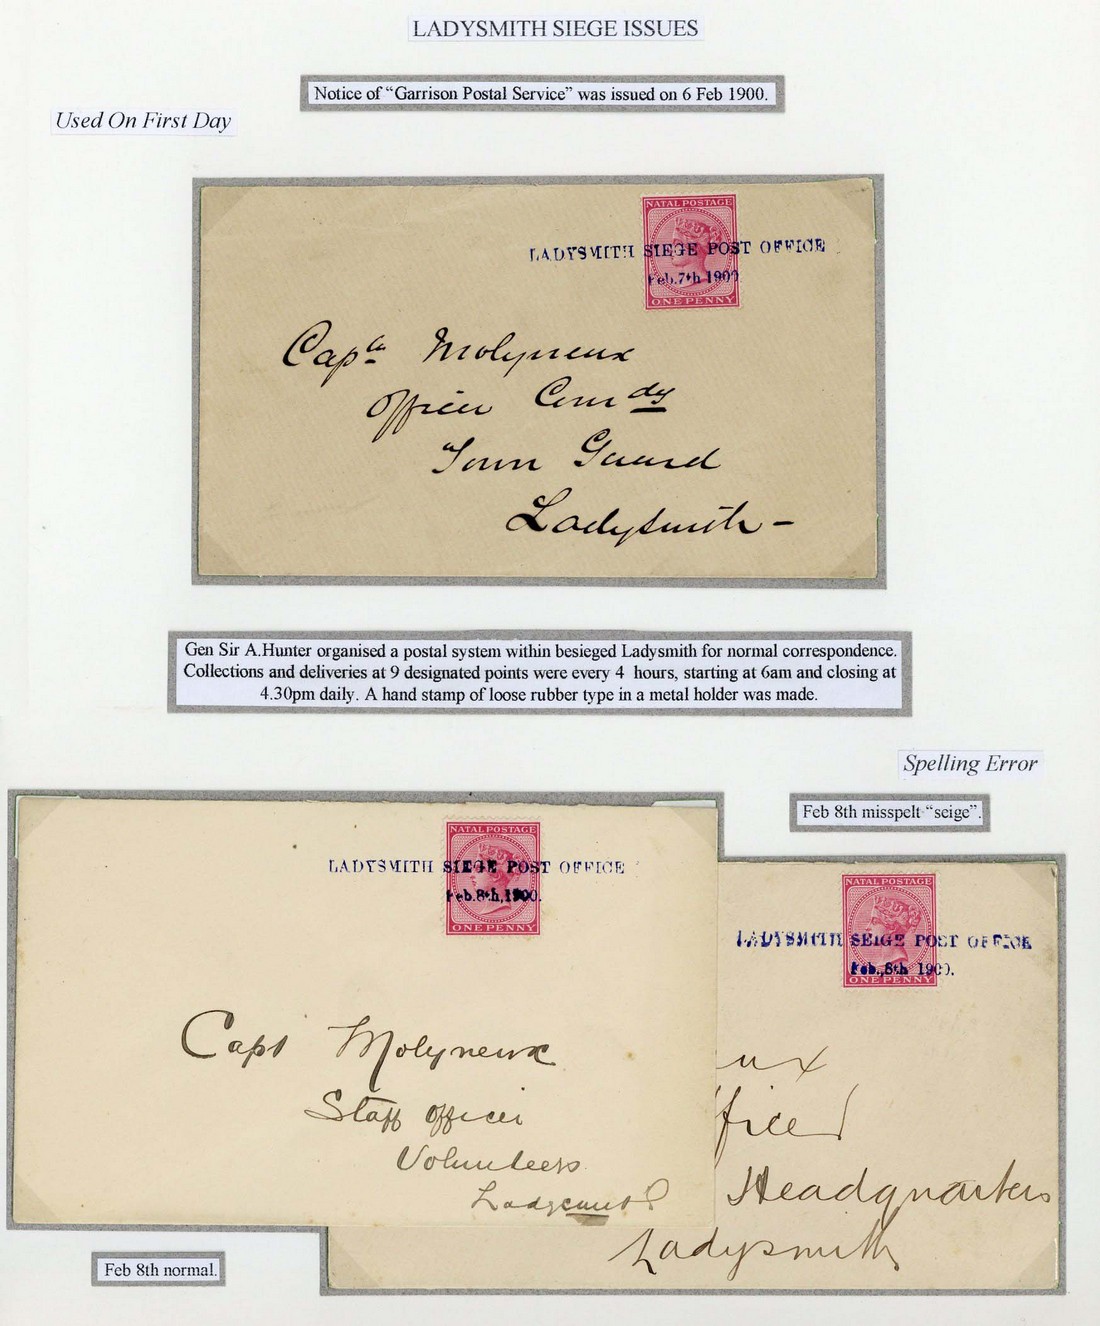 LADYSMITH SIEGE ISSUES
Notice of “Garrison Postal Service” was issued on 6 Feb 1900.
Used On First Day
NATAL POSTAGE
LADYSMITH SIEGE POST OFFICE
Feb.7th 1900
ONE PENNY
Capt Molyneux
Officer Comdg
Town Guard
Ladysmith –
Gen Sir A.Hunter organised a postal system within besieged Ladysmith for normal correspondence.
Collections and deliveries at 9 designated points were every 4 hours, starting at 6am and closing at
4.30pm daily. A hand stamp of loose rubber type in a metal holder was made.
Spelling Error
Feb 8th misspelt “seige”.
NATAL POSTAGE
LADYSMITH SIEGE POST OFFICE
Feb.8th,1900.
ONE PENNY
Capt Molyneux
Staff Officer
Volunteers
NATAL POSTAGE
LADYSMITH SEIGE POST OFFICE
Feb.,8th 1900.
ONE PENNY
ux
ffice
Headquarters
Ladysmith
Feb 8th normal.